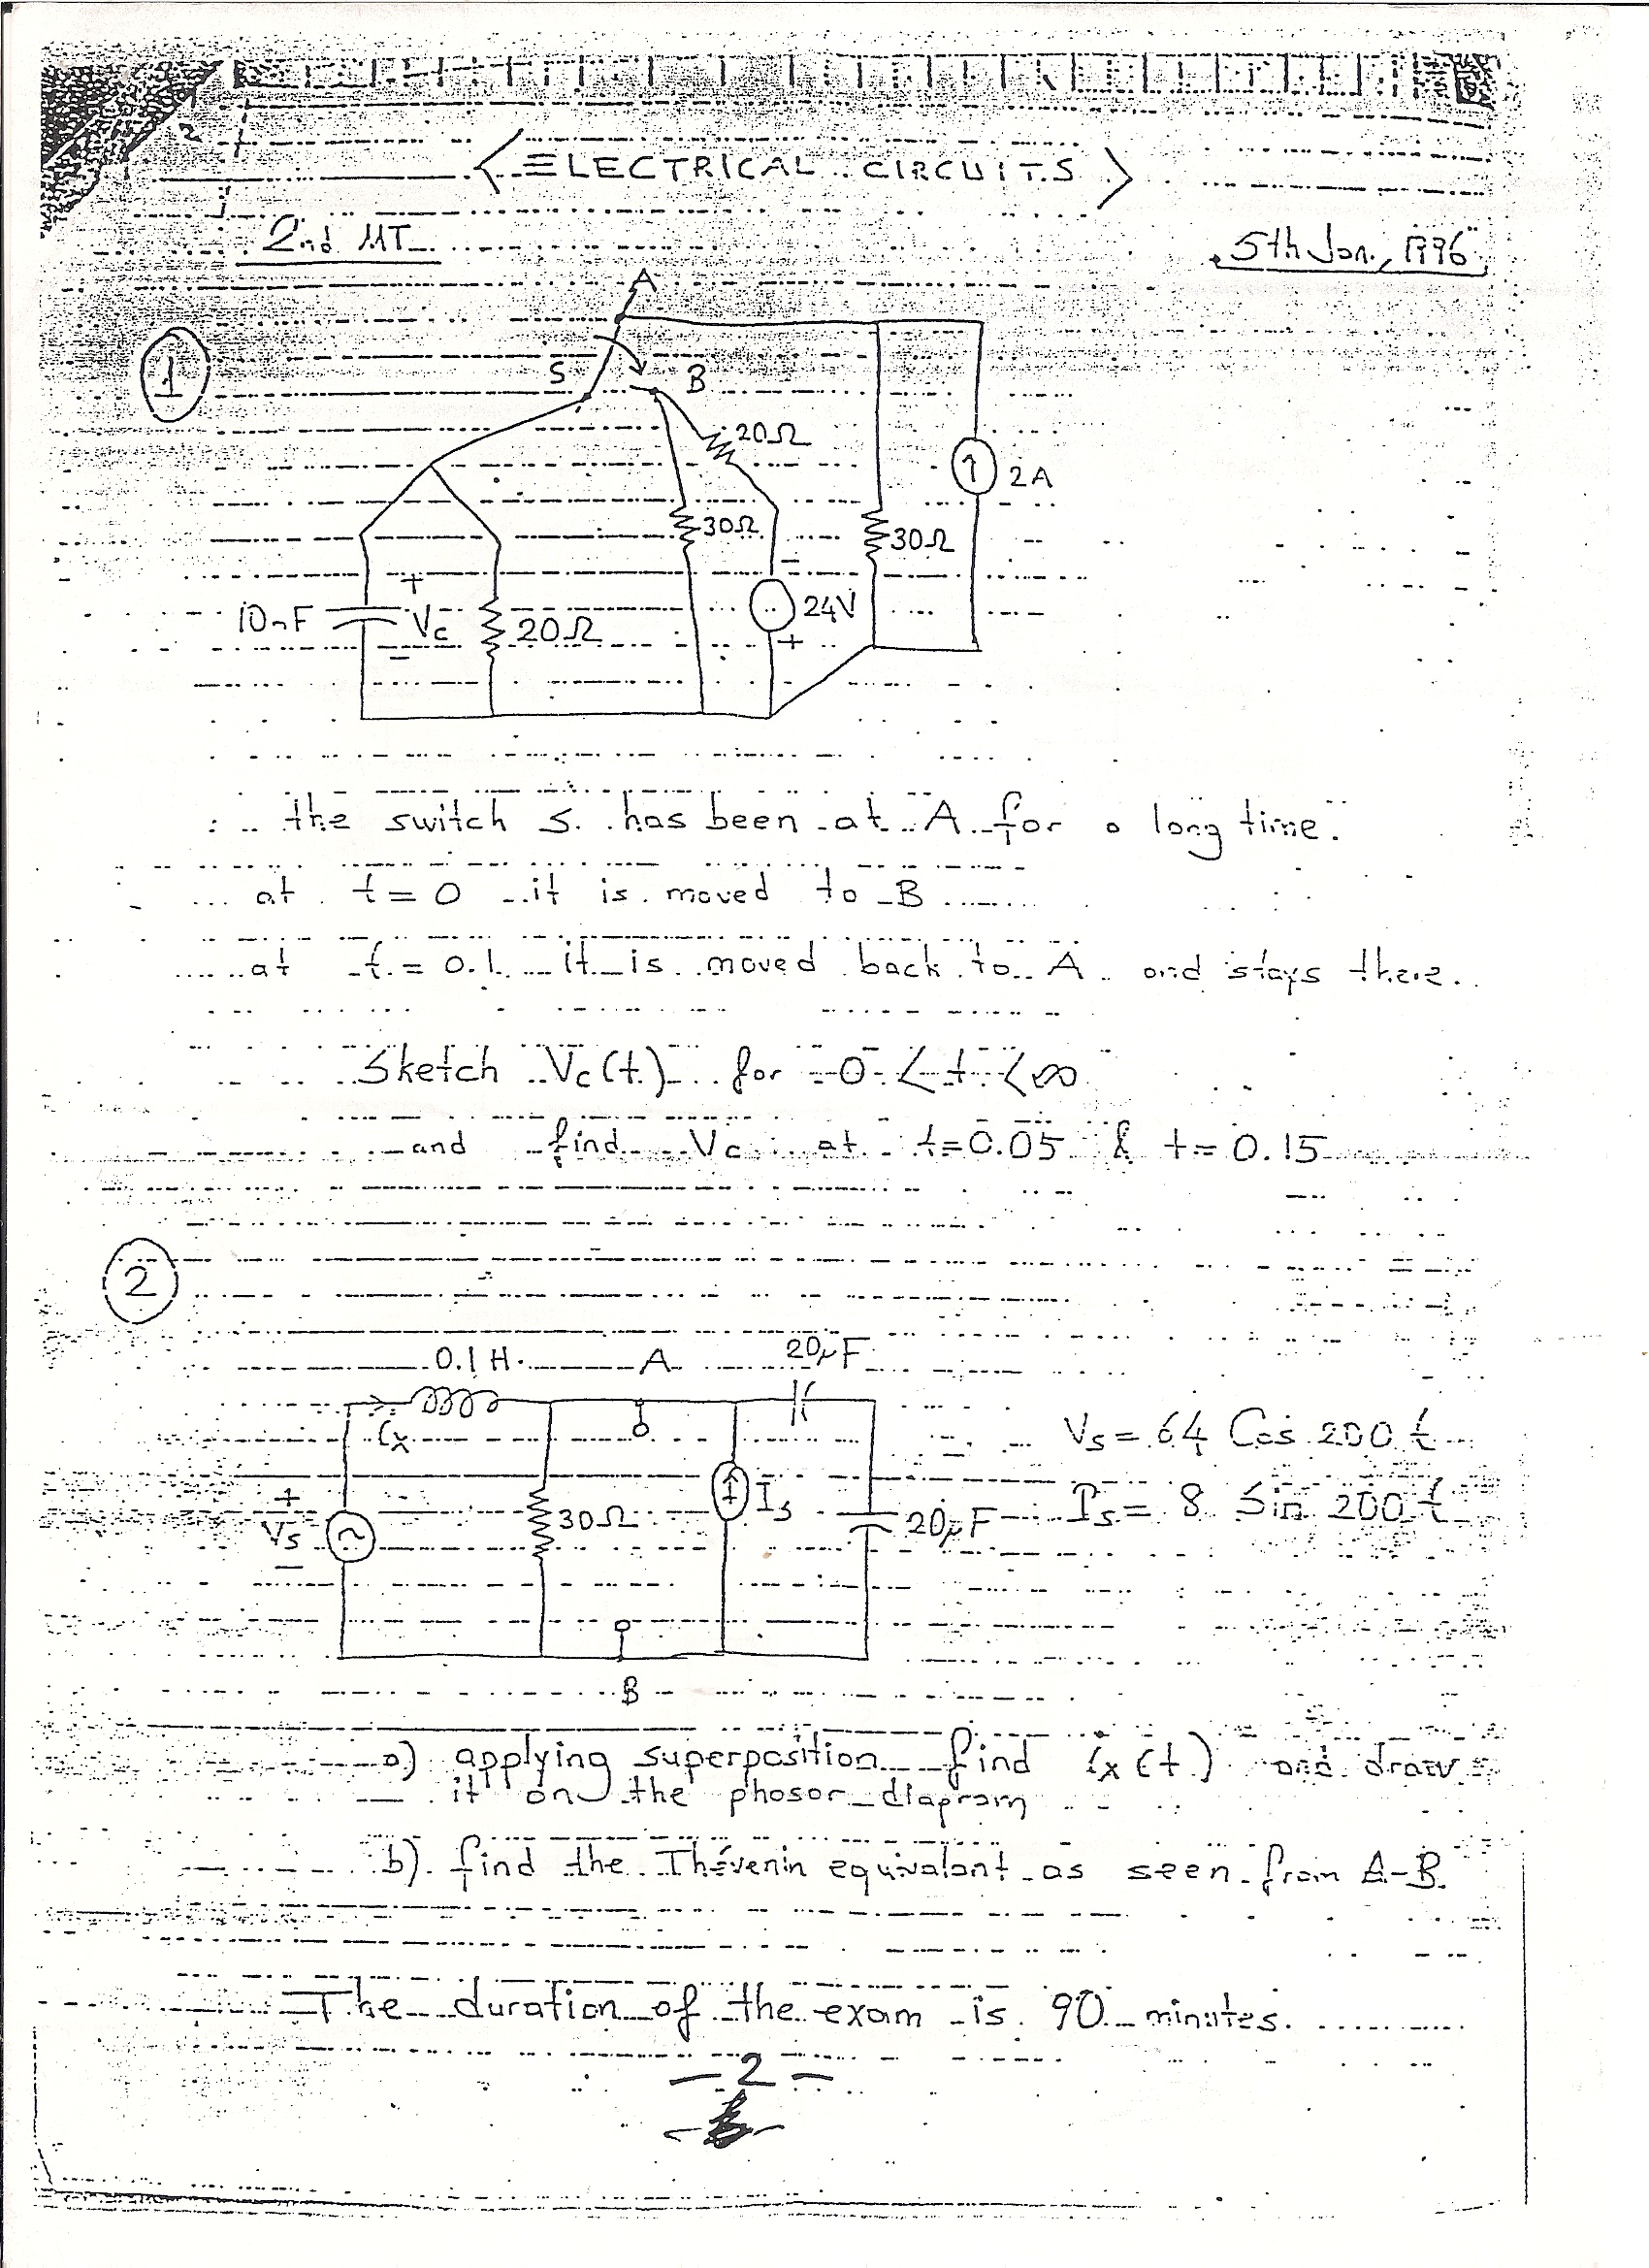 < ELECTRICAL CIRCUITS >
2nd MT
5th Jan., 1996
A
1
S
B
20Ω
2A
30Ω
30Ω
+
-
10nF
Vc
20Ω
24V
-
+
the switch S has been at A for a long time.
at t = 0 it is moved to B
at t = 0.1 it is moved back to A and stays there.
Sketch Vc(t) for -0 < t < ∞
and find Vc at t=0.05 & t=0.15
2
0.1 H
A
20μF
ix
Vs = 64 Cos 200 t
+
Vs
-
30Ω
Is
20μF
Is = 8 Sin 200 t
B
a) applying superposition find ix(t) and draw
it on the phasor diagram
b) find the Thévenin equivalant as seen from A-B.
The duration of the exam is 90 minutes.
- 2 -